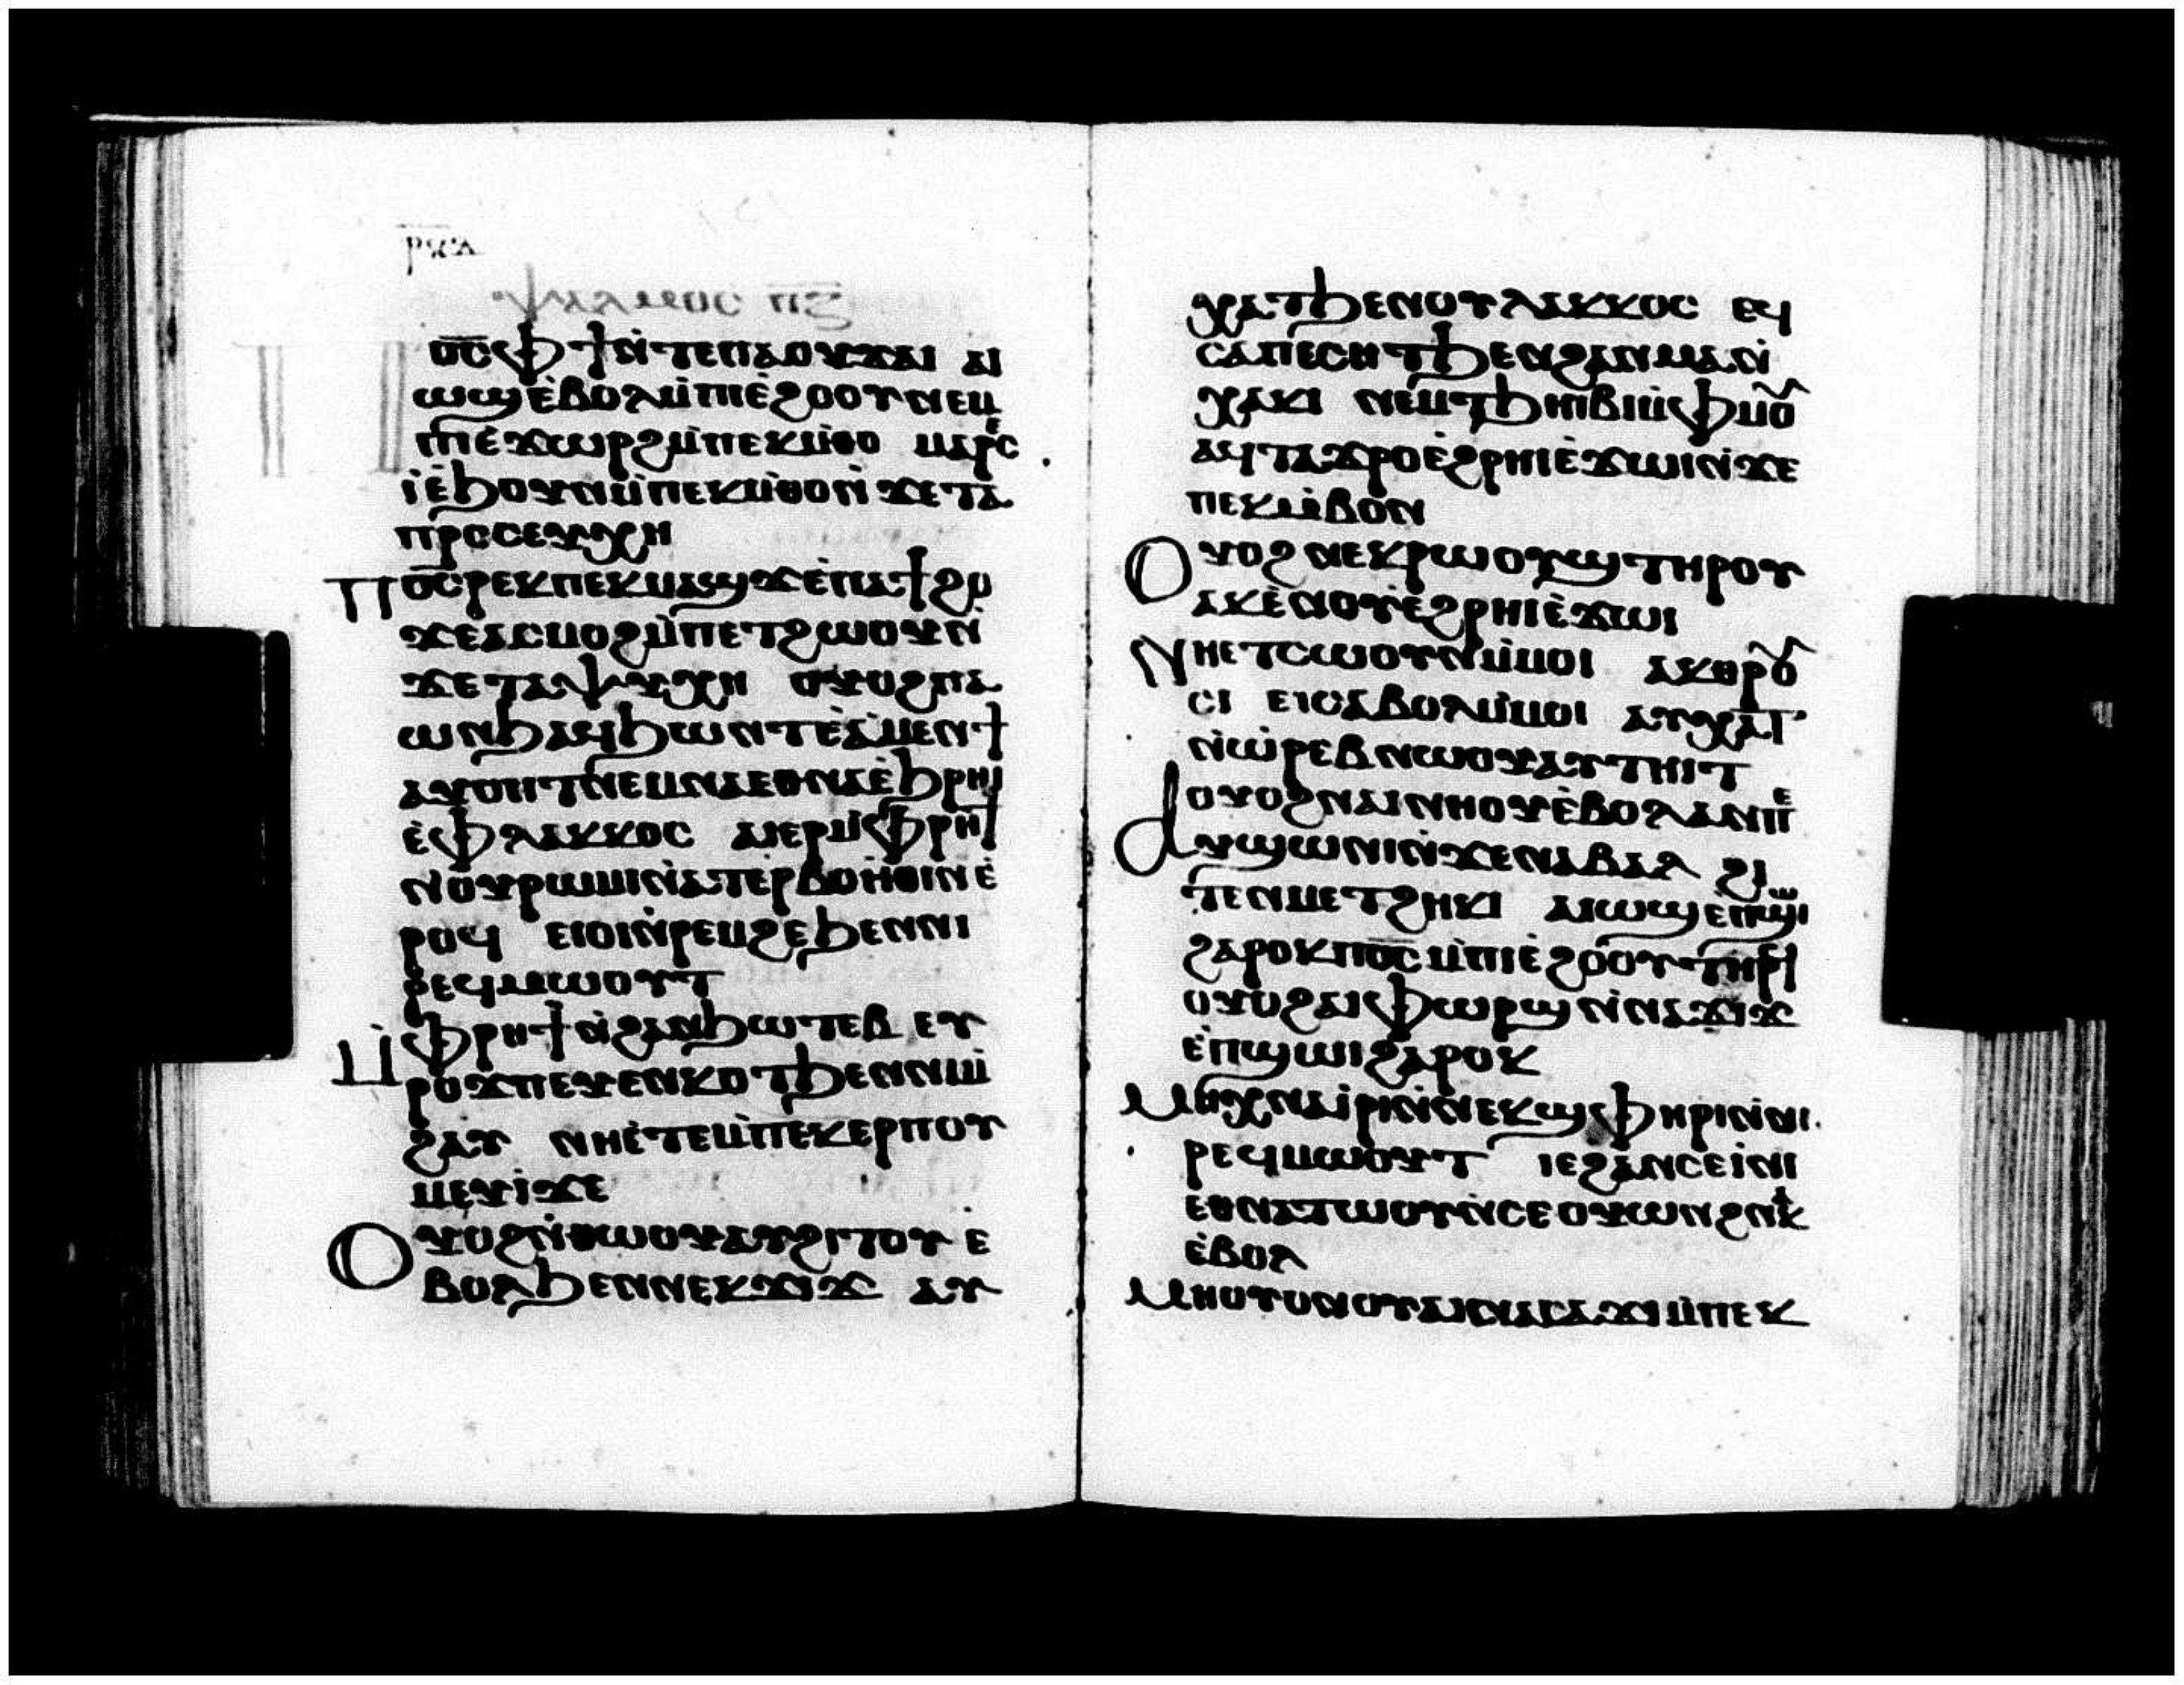 ⲣϥⲁ
ⲯⲁⲗⲙⲟⲥ ⲡⲍ
Ⲡⲟ̅ⲥ̅ⲫϯⲛ̀ⲧⲉⲡⲁⲟⲩϫⲁⲓ ⲁⲓ
ⲱϣⲉ̀ⲃⲟⲗⲙ̀ⲡⲓⲉ̀ϩⲟⲟⲩⲛⲉⲙ
ⲡⲓⲉ̀ϫⲱⲣϩⲙ̀ⲡⲉⲕⲙ̀ⲑⲟ ⲙⲁⲣⲉⲥ
ⲓ̀ⲉ̀ϧⲟⲩⲛⲙ̀ⲡⲉⲕⲙ̀ⲑⲟⲛ̀ϫⲉⲧⲁ
ⲡⲣⲟⲥⲉⲩⲭⲏ
Ⲡⲟ̅ⲥ̅ⲣⲉⲕⲡⲉⲕⲙⲁϣϫⲉ̀ⲡⲁϯϩⲟ
ϫⲉⲁⲥⲙⲟϩⲙ̀ⲡⲉⲧϩⲱⲟⲩⲛ̀
ϫⲉⲧⲁⲯⲩⲭⲏ ⲟⲩⲟϩⲡⲁ
ⲱⲛϧⲁϥϧⲱⲛⲧⲉ̀ⲁ̀ⲙⲉⲛϯ
ⲁⲩⲟⲡⲧⲛⲉⲙⲛⲁⲉⲑⲛⲁⲉ̀ϧⲣⲏⲓ
ⲉ̀ⲫⲗⲁⲕⲕⲟⲥ ⲁⲓⲉⲣⲙ̀ⲫⲣⲏϯ
ⲛⲟⲩⲣⲱⲙⲓⲛ̀ⲁⲧⲉⲣⲃⲟⲏⲑⲓⲛⲉ̀
ⲣⲟϥ ⲉⲓⲟⲓⲛ̀ⲣⲉⲙϩⲉϧⲉⲛⲛⲓ
ⲣⲉϥⲙⲱⲟⲩⲧ
Ⲙ̀ⲫⲣⲏϯⲛ̀ϩⲁⲛϧⲱⲧⲉⲃ ⲉⲩ
ⲣⲟϫⲡⲉⲩⲉⲛⲕⲟⲧϧⲉⲛⲛⲓⲙ̀
ϩⲁⲩ ⲛⲏⲉ̀ⲧⲉⲙ̀ⲡⲉⲕⲉⲣⲡⲟⲩ
ⲙⲉⲩⲓ̀ϫⲉ
Ⲟⲩⲟϩⲛ̀ⲑⲱⲟⲩⲁⲩϩⲓⲧⲟⲩ ⲉ̀
ⲃⲟⲗϧⲉⲛⲛⲉⲕϫⲓϫ ⲁⲩ
ⲭⲁⲧϧⲉⲛⲟⲩⲗⲁⲕⲕⲟⲥ ⲉϥ
ⲥⲁⲡⲉⲥⲏⲧϧⲉⲛϩⲁⲛⲙⲁⲛ̀
ⲭⲁⲕⲓ ⲛⲉⲙⲧϧⲏⲓⲃⲓⲙ̀ⲫⲙⲟⲩ
ⲁϥⲧⲁϫⲣⲟⲉ̀ϩⲣⲏⲓⲉ̀ϫⲱⲓⲛ̀ϫⲉ
ⲡⲉⲕⲙ̀ⲃⲟⲛ
Ⲟⲩⲟϩⲛⲉⲕⲣⲱⲟⲩϣⲧⲏⲣⲟⲩ
ⲁⲕⲉ̀ⲛⲟⲩⲉ̀ϩⲣⲏⲓⲉ̀ϫⲱⲓ
Ⲛⲏⲉⲧⲥⲱⲟⲩⲛⲙ̀ⲙⲟⲓ ⲁⲕⲑⲣⲟⲩ
ⲥⲓ ⲉⲓⲥⲁⲃⲟⲗⲙ̀ⲙⲟⲓ ⲁⲩⲭⲁⲧ
ⲛ̀ⲱ̀ⲣⲉⲃⲛⲱⲟⲩⲁⲩⲧⲏⲓⲧ
ⲟⲩⲟϩⲛⲁⲓⲛⲏⲟⲩⲉ̀ⲃⲟⲗⲁⲛⲡⲉ
Ⲁⲩϣⲱⲛⲓⲛ̀ϫⲉⲛⲁⲃⲁⲗ ϩⲓ
ⲧⲉⲛⲙⲉⲧϩⲏⲕⲓ ⲁⲓⲱϣⲉ̀ⲡϣⲱⲓ
ϩⲁⲣⲟⲕⲡⲟ̅ⲥ̅ⲙ̀ⲡⲓⲉ̀ϩⲟⲟⲩⲧⲏⲣϥ
ⲟⲩⲟϩⲁⲓⲫⲱⲣϣⲛ̀ⲛⲁϫⲓϫ
ⲉ̀ⲡϣⲱⲓϩⲁⲣⲟⲕ
Ⲙⲏⲭⲛⲁⲓ̀ⲣⲓⲛ̀ⲛⲉⲕϣⲫⲏⲣⲓⲛ̀ⲛⲓ
ⲣⲉϥⲙⲱⲟⲩⲧ ⲓⲉϩⲁⲛⲥⲉⲓ̀ⲛⲓ
ⲉⲑⲛⲁⲧⲱⲟⲩⲛ̀ⲥⲉⲟⲩⲱⲛϩⲛⲁⲕ
ⲉ̀ⲃⲟⲗ
Ⲙⲏⲟⲩⲟⲛⲟⲩⲁⲓⲛⲁⲥⲁϫⲓⲙ̀ⲡⲉⲕ